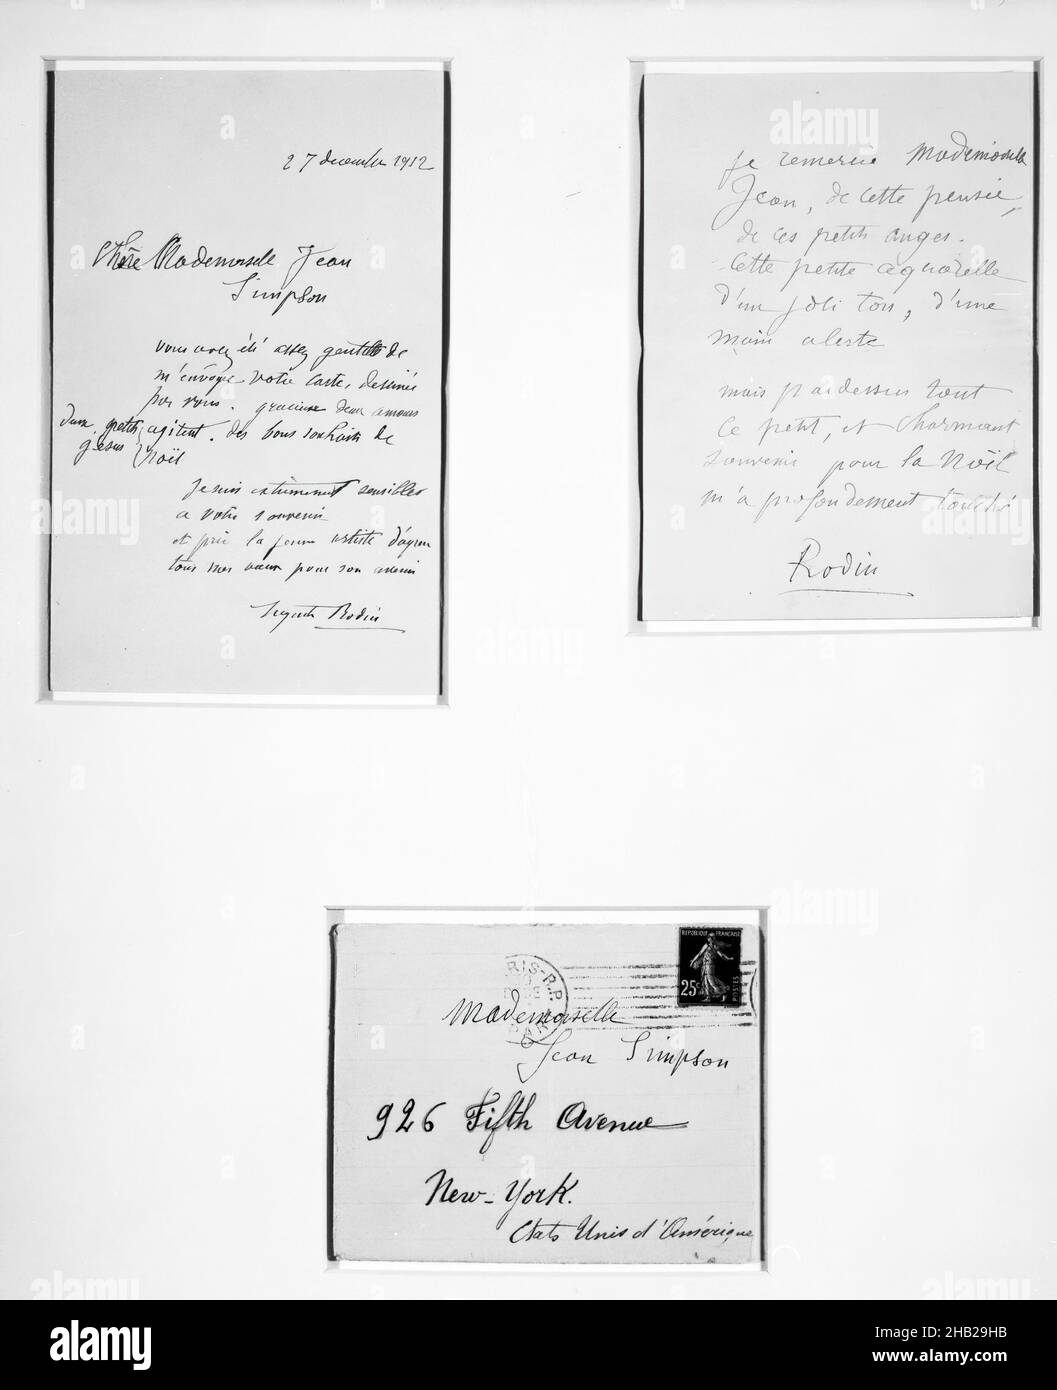 27 decembre 1912
Chère Mademoiselle Jean
Simpson
vous avez été assez gentille de
m'envoyer votre carte, dessinée
par vous. gracieuse deux amours
agitent. des bons souhaits de
noël
petits
Jesus
Je suis extrêmement sensible
a votre souvenir
et prie la jeune artiste d'agréer
tous mes vœux pour son avenir
Auguste Rodin
Je remercie Mademoiselle
Jean, de cette pensée,
de ces petits anges.
Cette petite aquarelle
d'un joli ton, d'une
main aleste
mais pardessus tout
ce petit, et charmant
souvenir pour la Noël
m'a profondement touché
Rodin
REPUBLIQUE FRANÇAISE
25c
POSTES
PARIS-R.P.
Mademoiselle
Jean Simpson
926 Fifth Avenue
New-York.
Etats Unis d'Amérique
alamy
Image ID: 2HB29HB
www.alamy.com